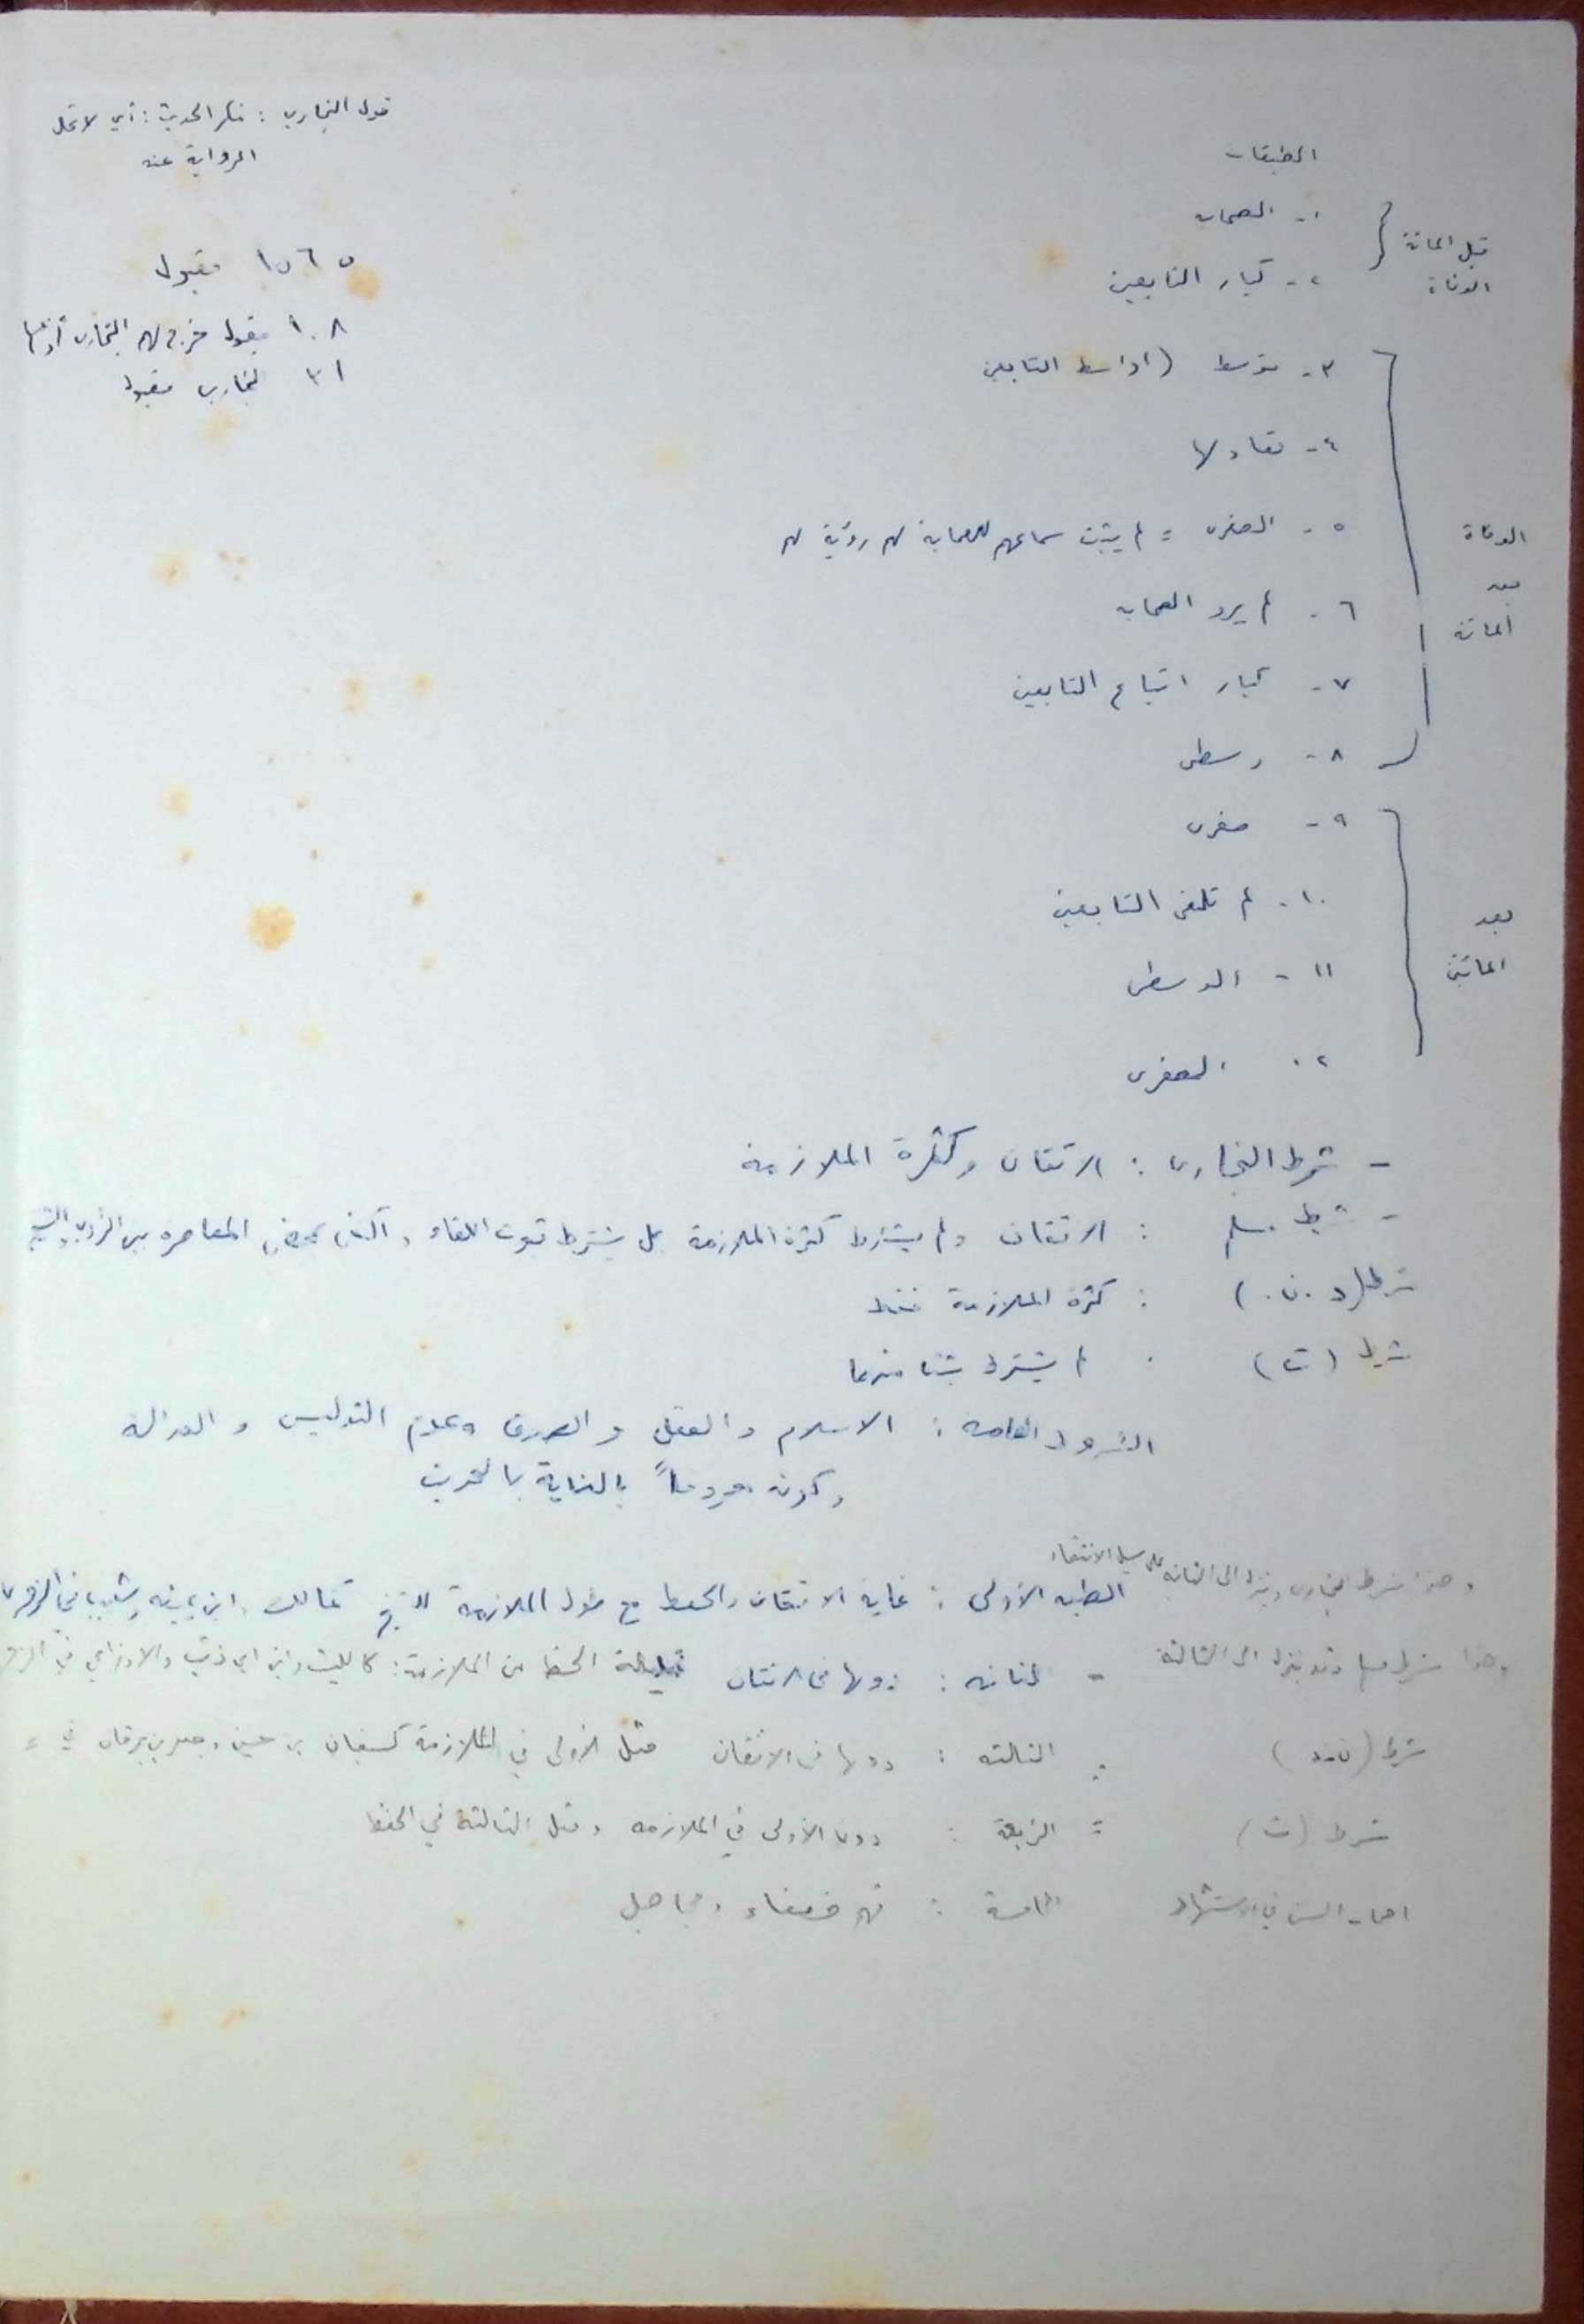 قول البخاري : منكر الحديث : أي لا تحل
الرواية عنه
١٥٦٥ مقبول
١٠٨ مقبول خرج لهم البخاري
٣١ لبخاري مقبول
الطبقات
١- الصحابه
٢- كبار التابعين
قبل المائة
الوفاة
٣- متوسط (اواسط التابعين
٤-
٥- الصغرى = لم يثبت سماعهم للصحابة لهم رؤية لهم
٦- لم يرو الصحابه
٧- كبار اتباع التابعين
٨- وسطى
الوفاة
بعد
المائة
٩- صغرى
١٠- لم تلقى التابعين
١١- الوسطى
١٢ الصغرى
بعد
المائتين
- شرط البخاري : الاتقان وكثرة الملازمة
- شرط مسلم : الاتقان ولم يشترط كثرة الملازمة بل يشترط ثبوت اللقاء المعاصرة بين الراوي
شرط (د . ن .) : كثرة الملازمة فقط
شرط (ت) . لم يشترط شيئا منهما
الشروط العامة : الاسلام والعقل والصدق وعدم التدليس والعدالة
وكونه بالعناية بالحديث
وهذا شرط البخاري وينزل الى الثانيه على سبيل الانتقاء
الطبقه الأولى : غاية الاتقان والحفظ مع طول الملازمة للشيخ كمالك وابن عيينه وشعيب في الزهري
وهذا شرط مسلم وقد ينزل الى الثالثة - الثانيه : دونها في الاتقان قليلة الحفظ من الملازمة : كالليث وابن ابي ذئب والاوزاعي في
شرط (ن ود) = الثالثه : دونها في الاتقان مثل الأولى في الملازمة كسفيان بن حسين وجعفر بن برقان في =
شرط (ت) = الرابعة : دون الأولى في الملازمه ومثل الثالثة في الحفظ
اصحاب السنن في الاستشهاد الخامسة : فهم ضعفاء ومجاهيل